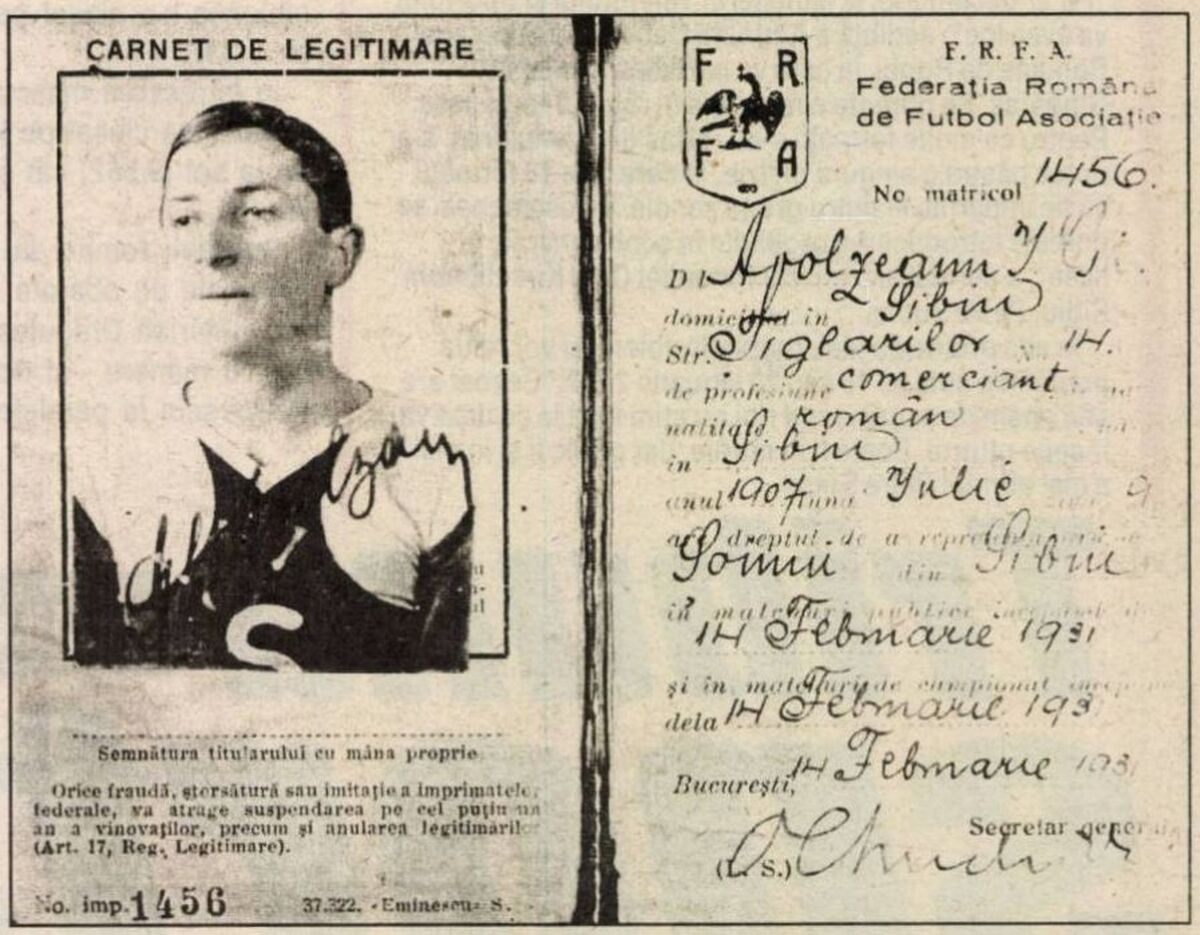 CARNET DE LEGITIMARE
S
Semnătura titularului cu mâna proprie
Orice fraudă, ștersătură sau imitație a imprimatelor
federale, va atrage suspendarea pe cel puțin un
an a vinovaților, precum și anularea legitimării
(Art. 17, Reg. Legitimare).
No. imp. 1456 37.322. -Eminescu- S.
F R
F A
F. R. F. A.
Federația Română
de Futbol Asociație
No matricol 1456.
Dl Apolzeanu
domiciliat in Sibiu
Str. No. 14.
de profesiune comerciant
nalitate român
in Sibiu
anul 1907 luna Iulie 9
are dreptul de a reprezenta
Șoimii din Sibiu
în matchuri publice începând
14 Februarie 1931
și în matchuri de campionat
dela 14 Februarie 1931
București, 14 Februarie 1931
Secretar general,
(L. S.)